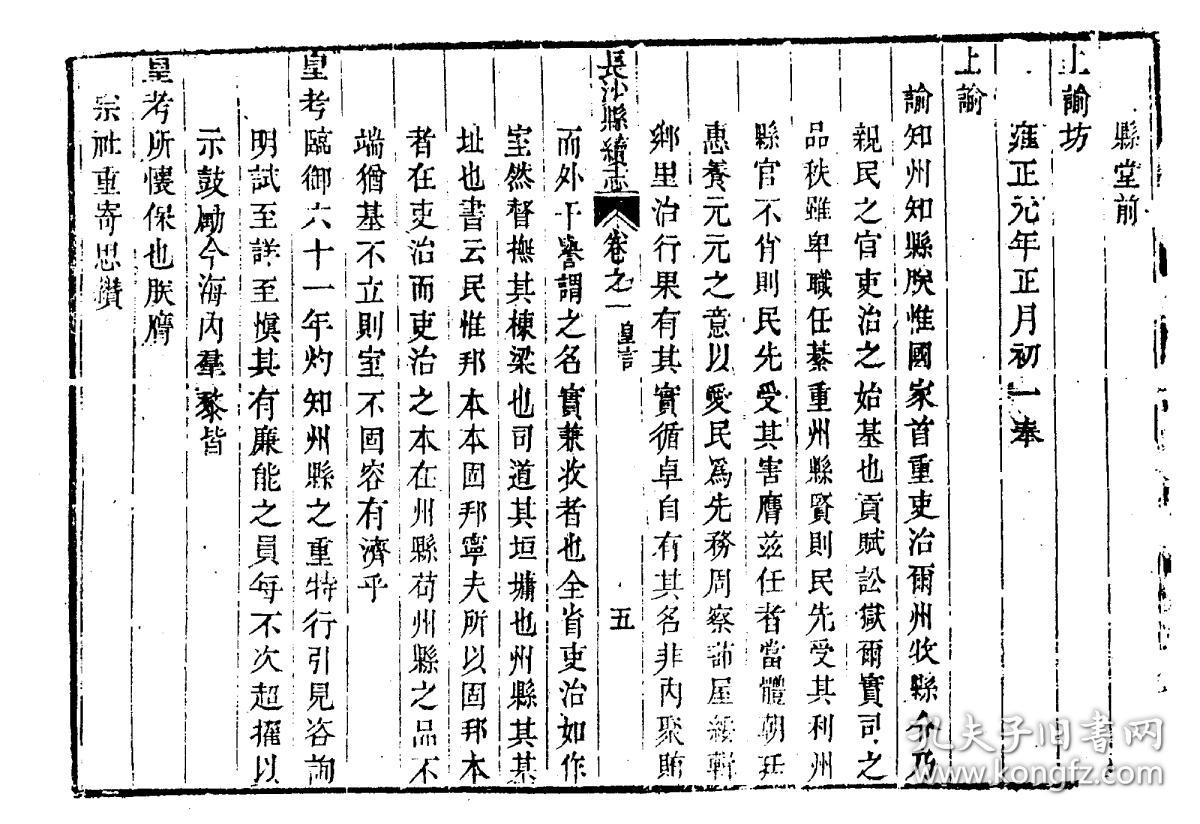 縣堂前
上諭坊
雍正元年正月初一奉
上諭
諭知州知縣朕惟國家首重吏治爾州牧縣令乃
親民之官吏治之始基也貢賦訟獄爾實司之
品秩雖卑職任綦重州縣賢則民先受其利州
縣官不肖則民先受其害膺兹任者當體朝廷
惠養元元之意以愛民爲先務周察蔀屋綏輯
鄉里治行果有其實循卓自有其名非内聚賄
長沙縣續志 卷之一 皇言 五
而外干譽謂之名實兼收者也全省吏治如作
室然督撫其棟梁也司道其垣墉也州縣其基
址也書云民惟邦本本固邦寧夫所以固邦本
者在吏治而吏治之本在州縣苟州縣之品不
端猶基不立則室不固容有濟乎
皇考臨御六十一年灼知州縣之重特行引見咨詢
明試至詳至愼其有廉能之員每不次超擢以
示鼓勵今海内羣黎皆
皇考所懷保也朕膺
宗社重寄思纘
孔夫子旧书网
www.kongfz.com